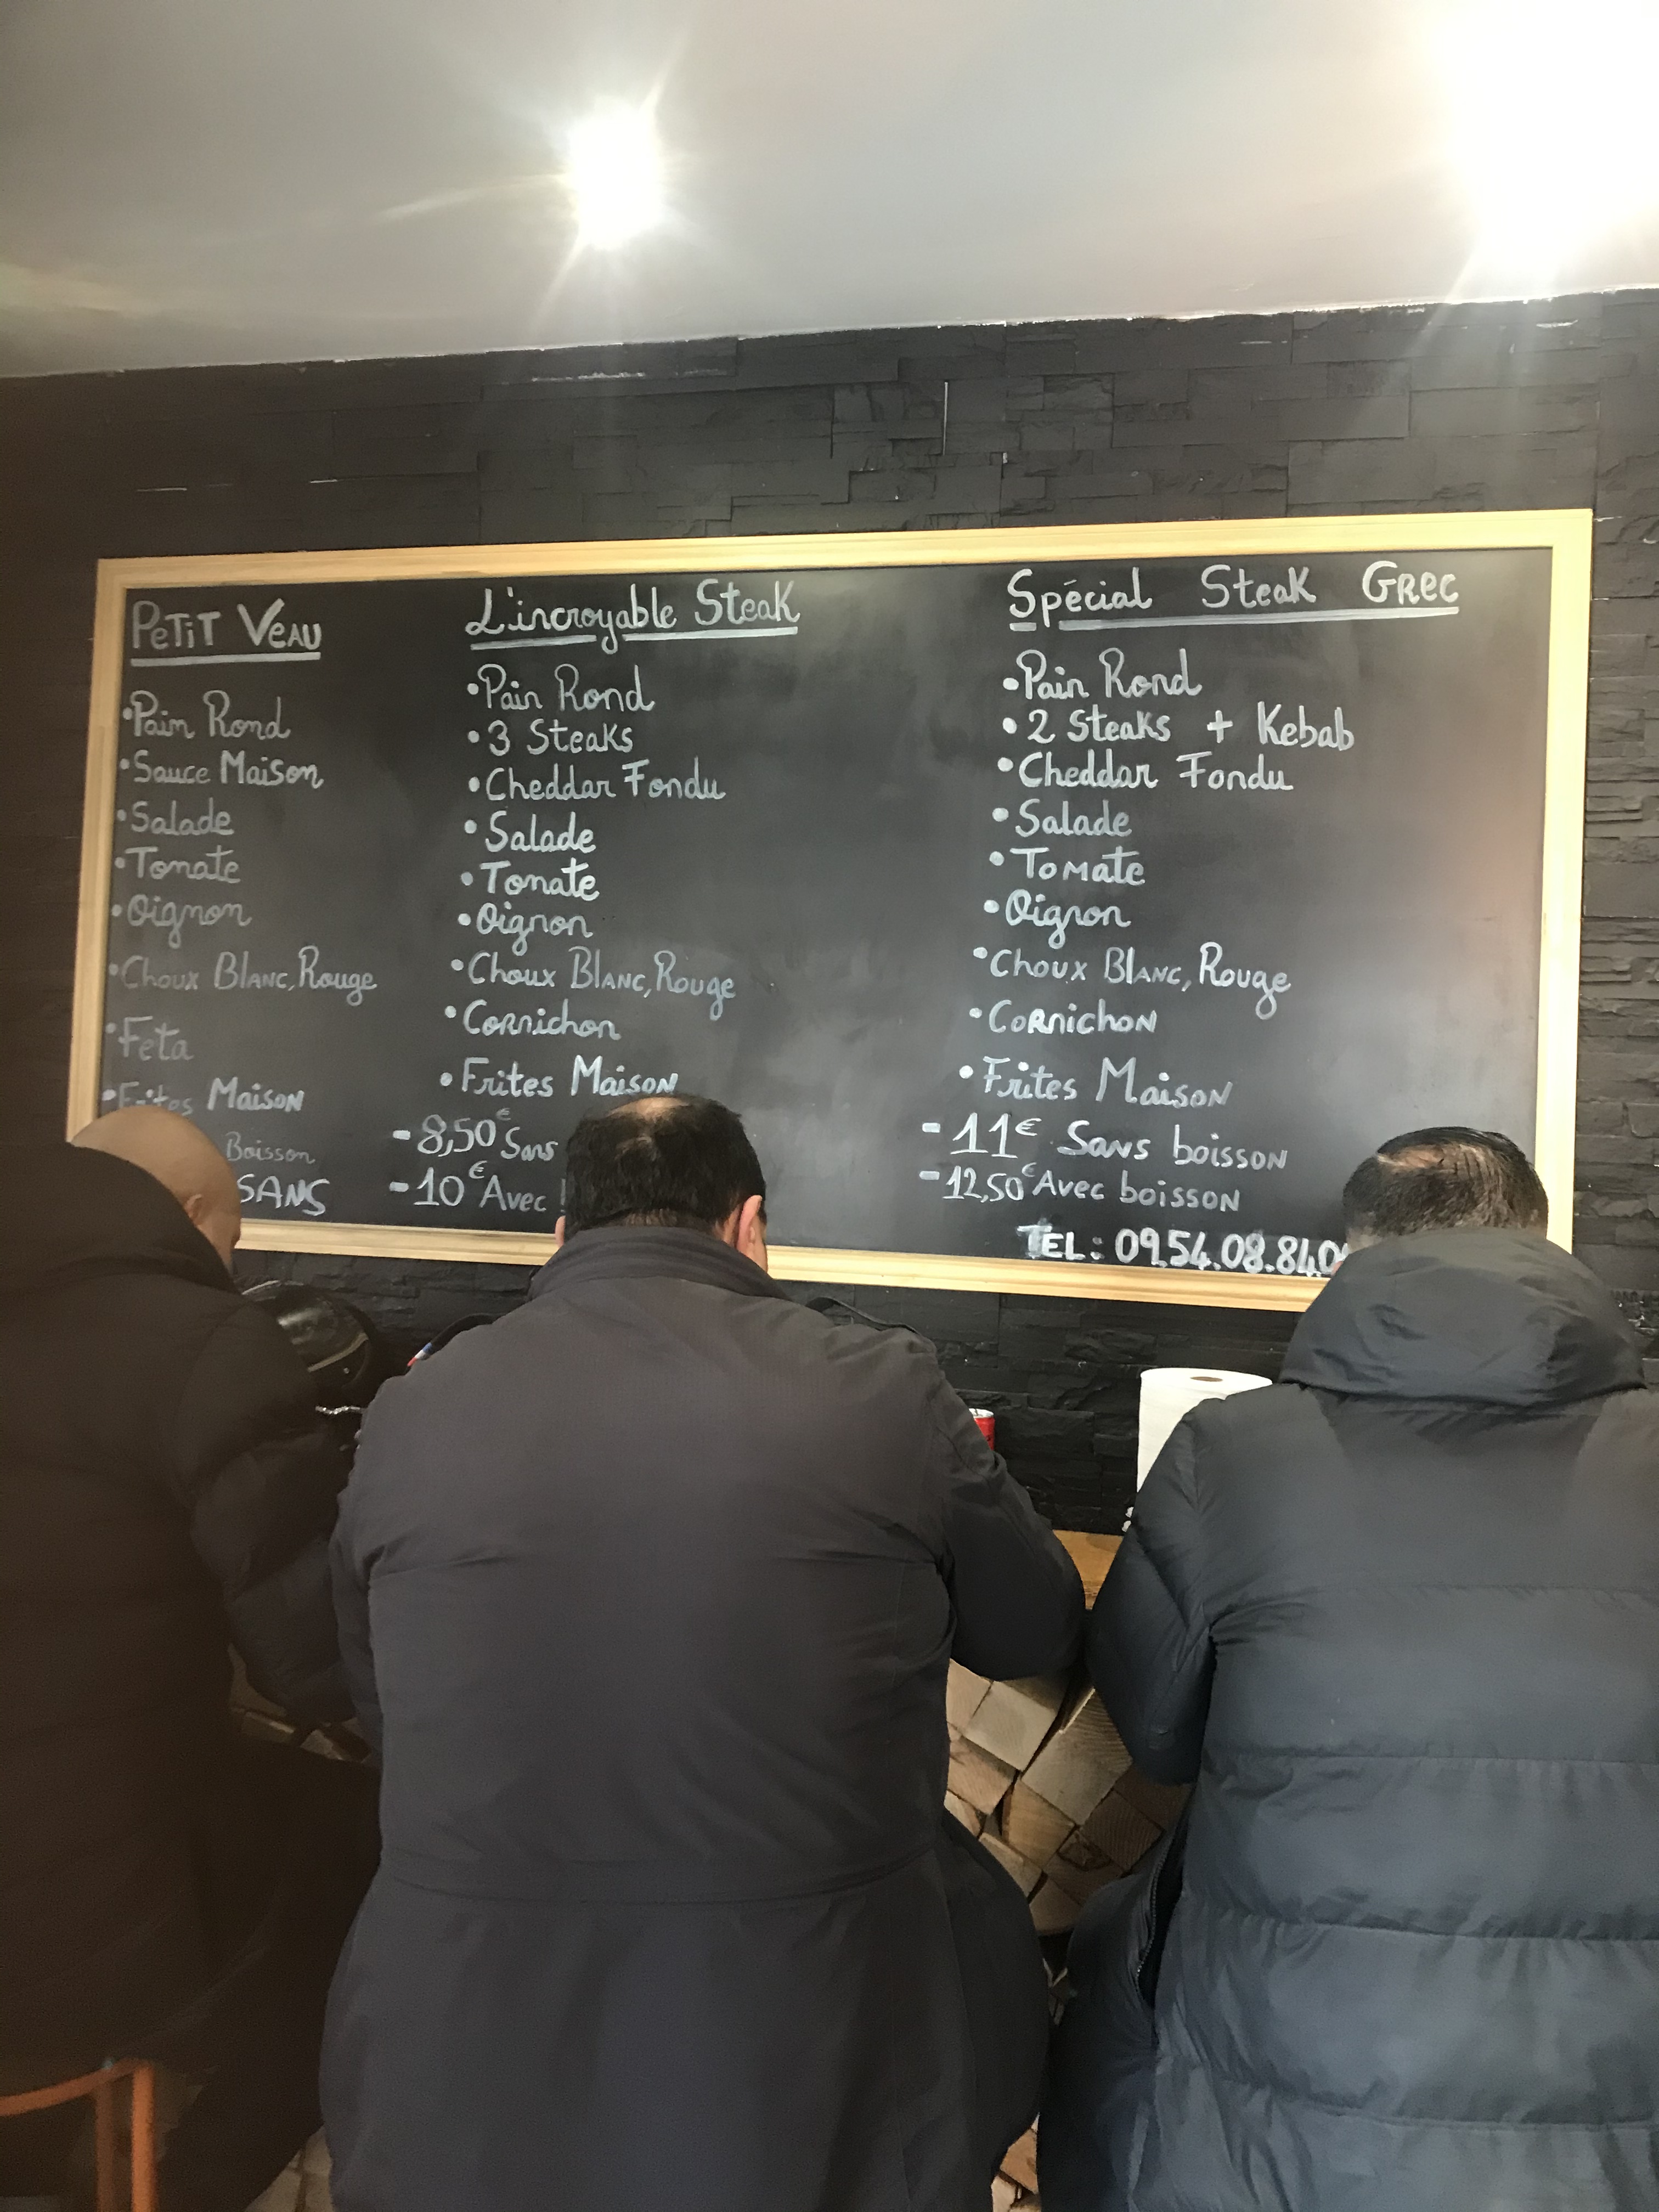 PETIT VEAU
• Pain Rond
• Sauce Maison
• Salade
• Tomate
• Oignon
• Choux Blanc, Rouge
• Feta
• Frites Maison
Boisson
SANS
L'incroyable Steak
• Pain Rond
• 3 Steaks
• Cheddar Fondu
• Salade
• Tomate
• Oignon
• Choux Blanc, Rouge
• Cornichon
• Frites Maison
- 8,50€ Sans
- 10€ Avec
Spécial Steak Grec
• Pain Rond
• 2 Steaks + Kebab
• Cheddar Fondu
• Salade
• Tomate
• Oignon
• Choux Blanc, Rouge
• Cornichon
• Frites Maison
- 11€ Sans boisson
- 12,50€ Avec boisson
TEL: 09.54.08.84.0